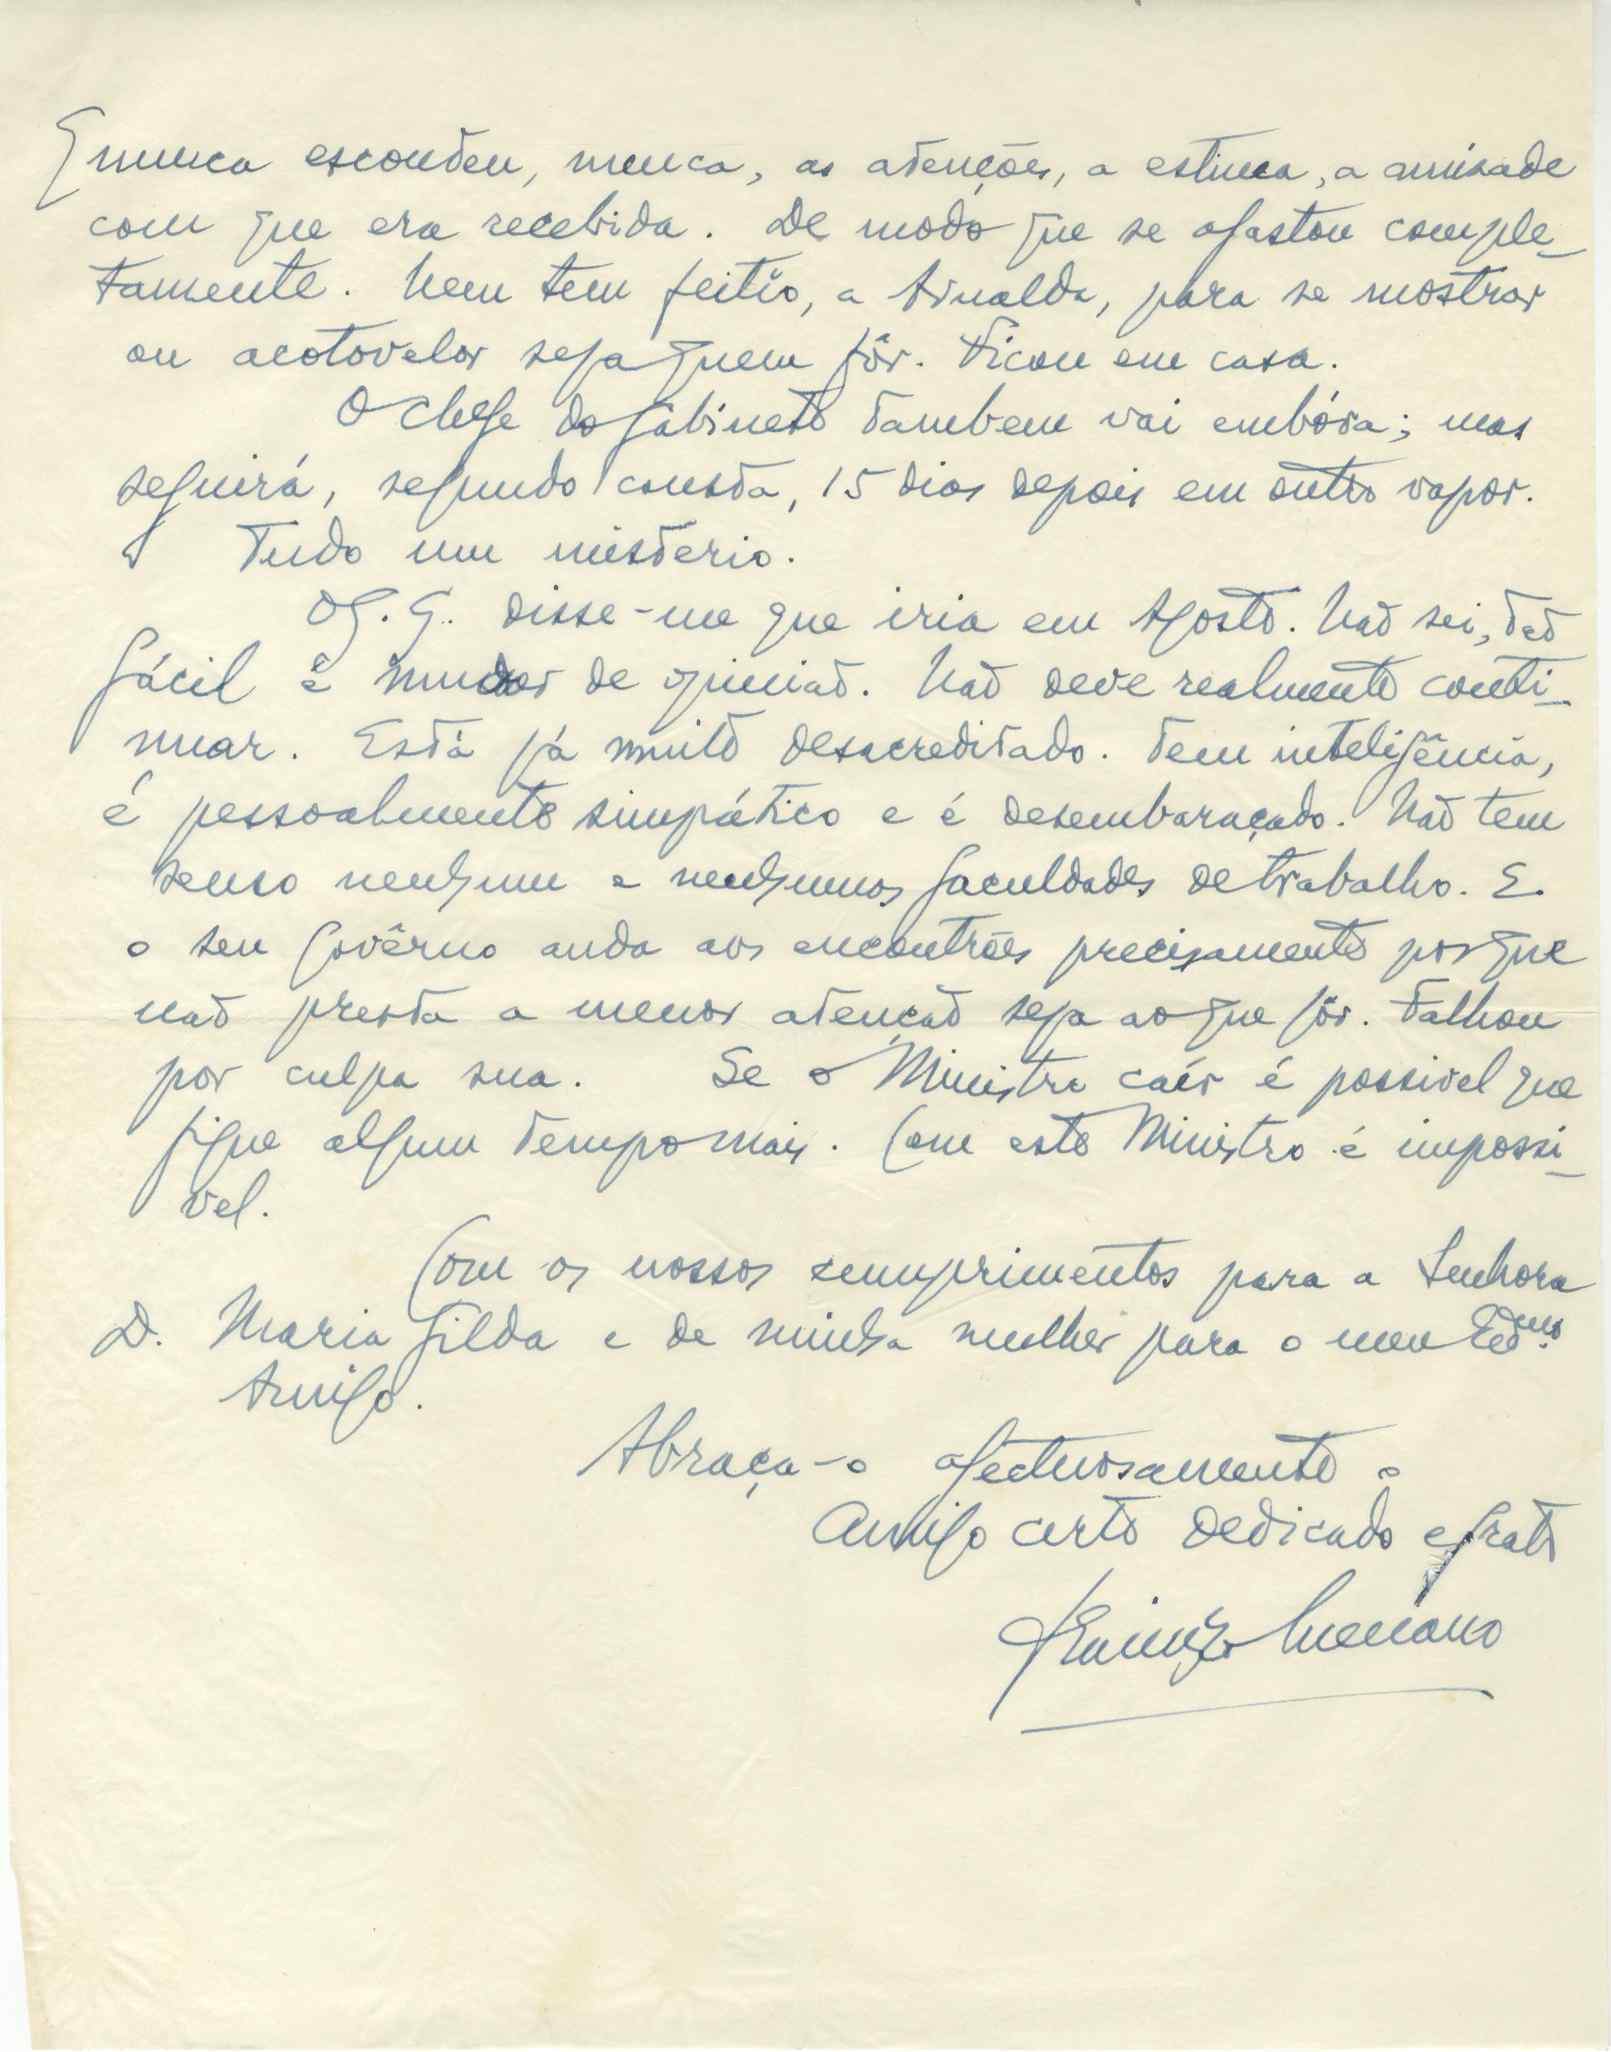 E nunca escondeu, nunca, as atenções, a estima, a amizade
com que era recebida. De modo que se afastou comple-
tamente. Nem tem feitio, a Arnalda, para se mostrar
ou acotovelar seja quem fôr. Ficou em casa.
O chefe do gabinete tambem vai embóra; mas
seguirá, segundo consta, 15 dias depois em outro vapor.
Tudo um misterio.
O G. G. disse-me que iria em Agosto. Não sei, tão
fácil é mudar de opinião. Não deve realmente conti-
nuar. Está já muito desacreditado. Tem inteligência,
é pessoalmente simpático e é desembaraçado. Não tem
senso nenhum e nenhumas faculdades de trabalho. E
o seu govêrno anda aos encontrões precisamente porque
não presta a menor atenção seja ao que fôr. Falhou
por culpa sua. Se o Ministro caír é possivel que
fique algum tempo mais. Com este Ministro é impossi-
vel.
Com os nossos cumprimentos para a Senhora
D. Maria Gilda e de minha mulher para o meu
Amigo.
Abraça-o afectuosamente o
Amigo certo dedicado e grato